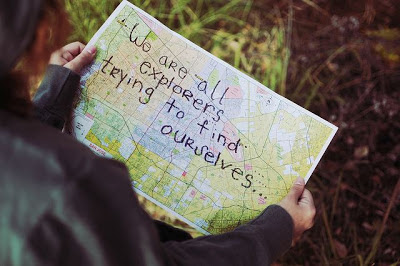 "We are all
explorers
trying to find
ourselves...